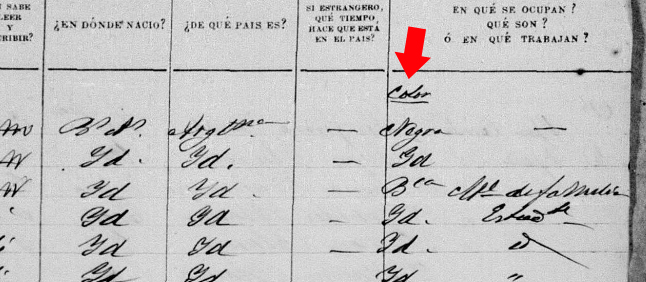 N SABE LEER Y RIBIR? ¿EN DÓNDE NACIO? ¿DE QUÉ PAIS ES? SI ESTRANGERO, QUÉ TIEMPO, HACE QUE ESTÁ EN EL PAIS? EN QUÉ SE OCUPAN? QUÉ SON? Ó EN QUÉ TRABAJAN?
Color
Bs As. Argtna — Negra —
Yd. Yd. — Yd
Yd Yd. — Bca Me. de familia
Yd Yd — Yd. Estudte
Yd Yd — Yd. id
Yd Yd Yd "